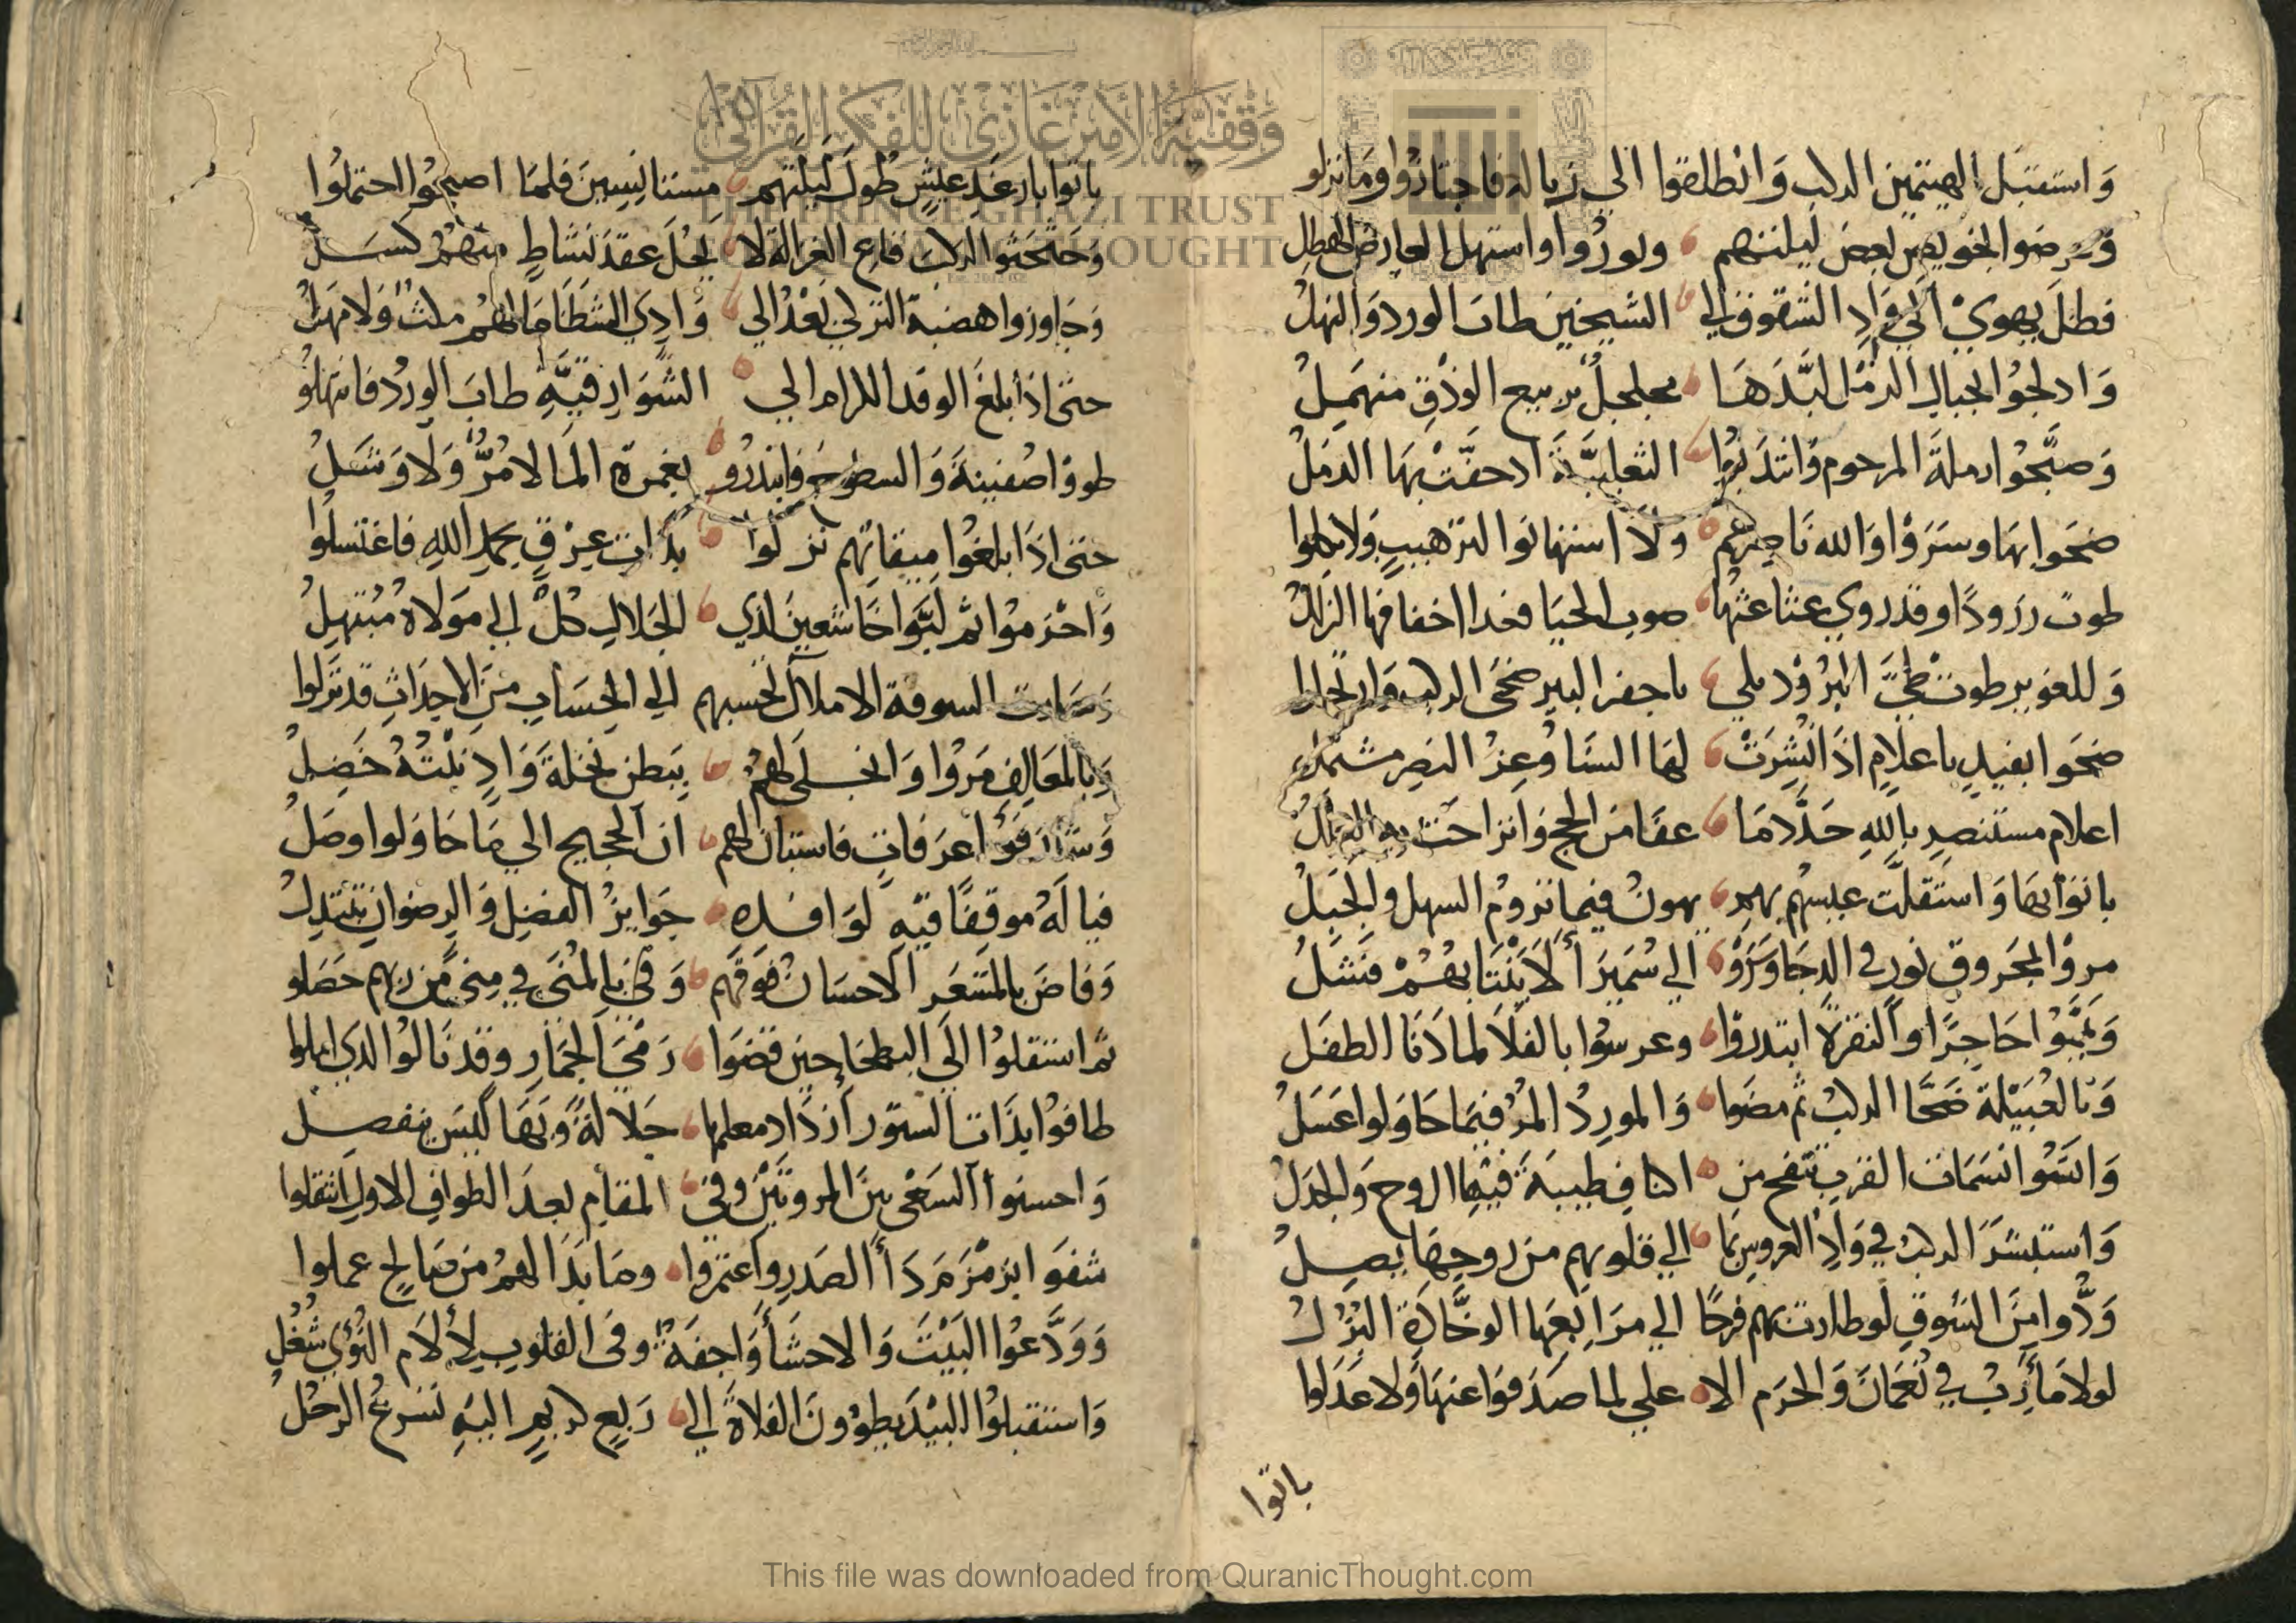 وَاستقبَل الهيتمين الركب وَانطلقوا الي زبالة فاجتازوا وَمَا نزلو
وَعرضوا لخويصين بعض ليلتهم وبوروا واستهل العارض الهطل
فظلَ يهوي الي وَادِ الشقوق الي الشيحين طابَ الورد وَالنهلُ
وَادلجُوا لجبالِ الرمْل لبَّدَهَا مجلجلٌ بربيع الودْقِ منهَمِلُ
وَصبَّحُوا رملةَ المرحوم وَانتدَبُوا الثعلبيَّةَ ادحفّتْ بهَا الرمَلُ
ضحَوا بهَا وسَرَوْا وَالله نَاصِرهُم وَلَا استهانوا لترهيبٍ وَلا
طوت زرَودًا وقد روي عثاعثهَا صوبِ الحيَا فغدا اخفافها الزللُ
وَللغوير طوت طيَّ البُرُوْد بأجفر البير ضحَى الركب وَارتحلوا
ضحَوا بفيدٍ باعلامٍ اذَا نُشِرَتْ لهَا السنَا وُعِزُ النصِر مشتمل
اعلام مستنصِرٍ باللهِ حَدَّدَمَا عفَا مَن الحجِ وَانزاحَت به
باتوْا بهَا وَاستَقلَّت عيسهُم بهمِ يهونُ فيما تَرومُ السهل والجَبلُ
مرو المجَروق نور في الدجَا وسَرَوْ الي سُمَيرَأَ لَا يَنْتَابهُمْ فَشَلُ
وَيَمَّمُوا حَاجِرًا وَالنقرةَ ابتدروْا وعرسُوا بالفلَا لمادَنَا الطفَل
وَبالعُبَيْلة ضَحَّا الركبُ ثم مضَوا وَالموردُ المُر فيمَا حَاوَلوا عَسَلُ
وَانسَمُوا نسَمَات القربِ تنفح من اكنافِ طيبَةَ فيهَا الروح وَالجذلُ
وَاستبشَرَ الركبُ في وَادِ العروسِ بمَا الي قلوبهم من روحِهَا يصِلُ
وَدُّوا مِنَ الشوقِ لو طارت بهم فرحًا الي مرَابعهَا الوخَّادَة البُزُلُ
لولا مَأرِبُ في نُعْمَانَ وَالحرَم الا علي لما صَدَفوا عنهَا وَلا عَدَلوا
باتوا
باتوا بارغَد عيشٍ طولَ ليلتهم مستانِسِينَ فلمَا اصبحُوا احتملُوا
وَحَثحَثوا الركبَ فارع الغزالة لا يَحُلَ عقدَ نشاطٍ منهُمُ كسَلُ
وَجَاوزوا هضبة التركِي تَعْدُ الي وَادِي الشظَا مَا لهُم ملثٌ وَلا مهَلُ
حتى اذا بلغَ الوفد الكرام الي الشَوَارِقِيَّةِ طابَ الوِرْد فانتهلوْ
طووْا صُفينةَ وَالسطوح وانتدرُو بغمرة المَا لا مُرٌّ وَلَا وَشَلُ
حتى اذَا بلغُوا ميقاتهم نزَلوا بذاتِ عِرْقٍ بحمدِ اللهِ فاغتسلُوا
وَاحْرَموُا ثم لبَّوا خَاشعِينَ لذي الجَلالِ كلٌ الي مَولاهُ مُبْتَهِلُ
وَصَارت السوقة الاملاك تحسبهم الي الحِسَابِ مِنَ الاجدَاثِ قد نزَلوا
وَبالمعَالف مَروْا وَانجلى لهُمُ بِبَطنِ نخلةَ وَادٍ نبْتُهُ خَضِلُ
وَشارَفوُا عرَفاتٍ فاستبان لهم ان الحجيج الي مَا حَاوَلوا وصَلُ
فيا لَهُ موقِفًا فيهِ لوَافده جَوَايزُ الفضلِ وَالرضوانِ تَبْتدِلُ
وَفاضَ بالمشعَر الاحسَان فوَقَهم وَفي بالمُنَى في مِنى من ربهم حَصَلو
ثم استقلوُا الَي البطحَاحِين قضَوا رَمْيَ الجمَارِ وقد نَالوُا الذي املوا
طافوُا بذَات الستور ازدَاد معلمها جَلالةً وَبَهًا ليْسَ ينفصِلُ
وَاحسنوا السَعْي بينَ المروتَيْن وفي المقام بعدَ الطوافِ الاول انتقلوا
شفَوَا بزمْزَمَ دَأَ الصَدرِ وَاعتَمرُوا وَمَا بدَا لهمُ مِن صَالحٍ عملوا
وَوَدَّعوُا البَيْتَ وَالاحشَأ وَاجفَةٌ وفي القلوبِ لِأَلَامِ النُّؤَي شُغُلُ
وَاستقبلوُا البيْدَ يطوُونَ الفلاةَ الي رَبِيعِ لربعٍ اليهِ تسْرعُ الرحُلُ
This file was downloaded from QuranicThought.com